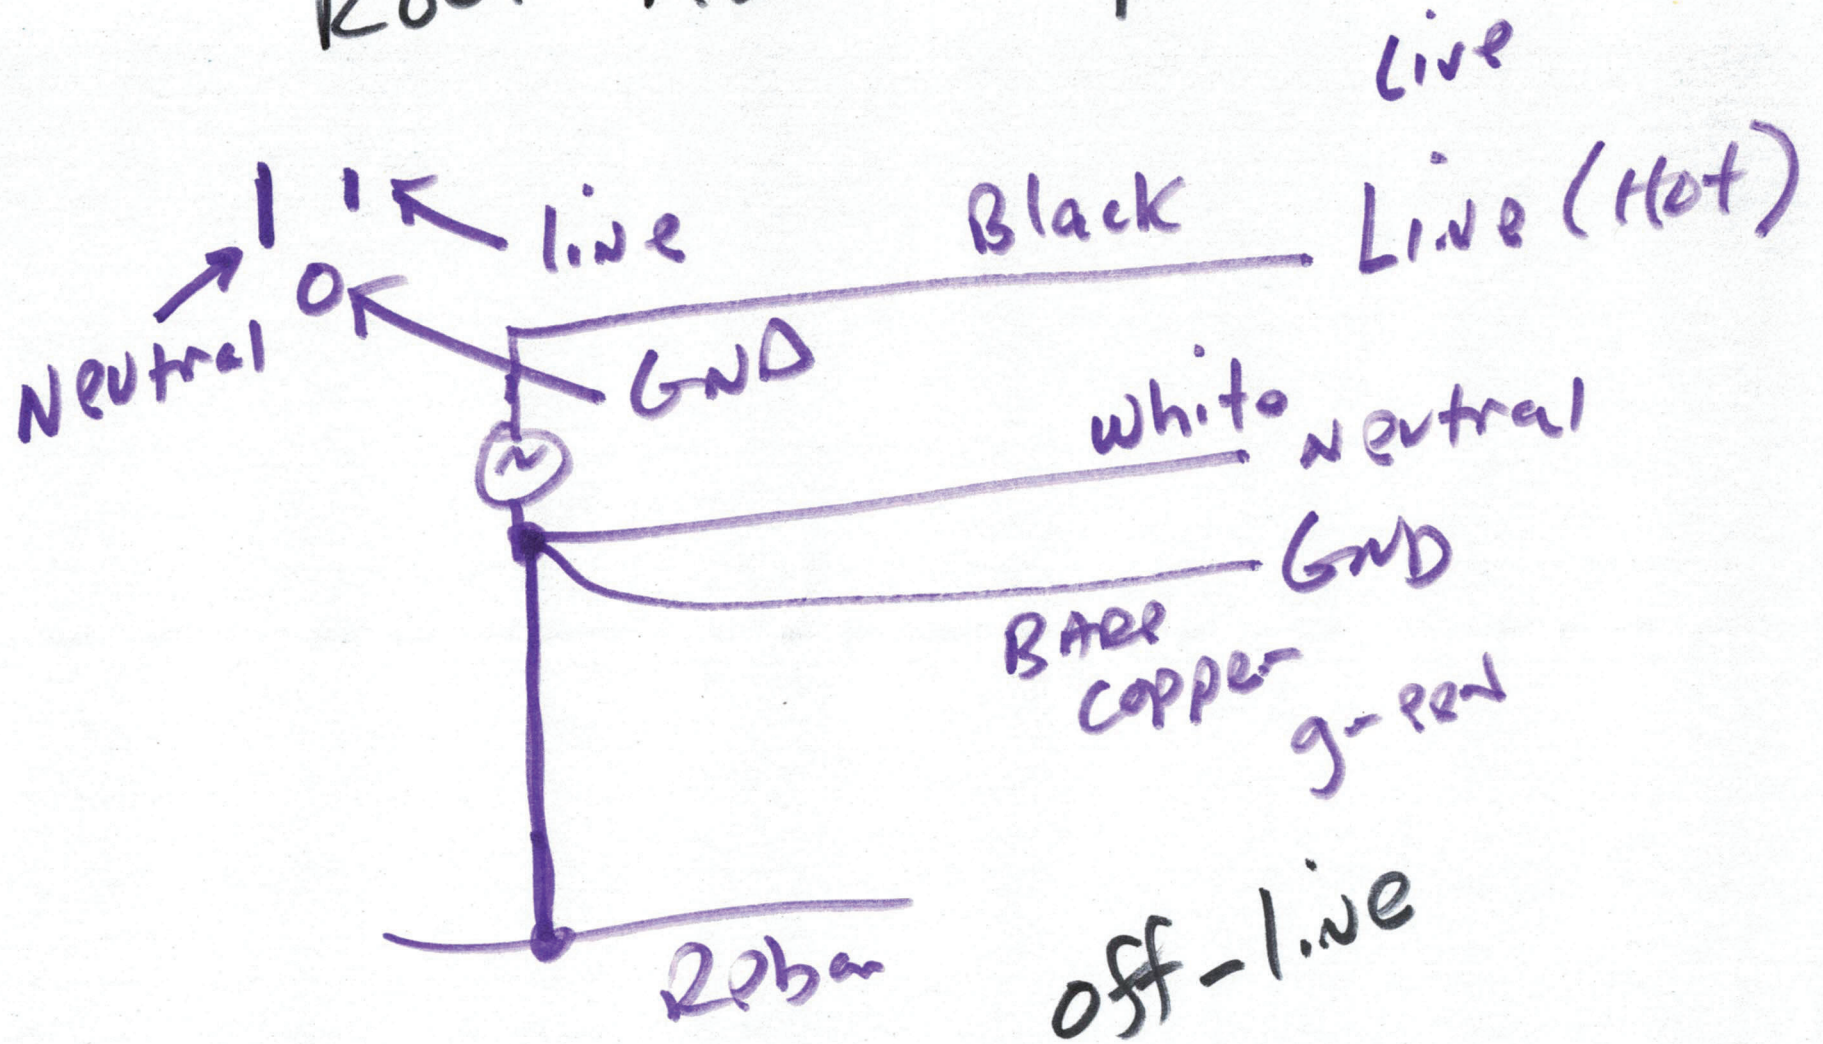 Live
Line (Hot)
Black
line
Neutral
GND
White
Neutral
GND
BARE
copper
green
Rebar
off-line